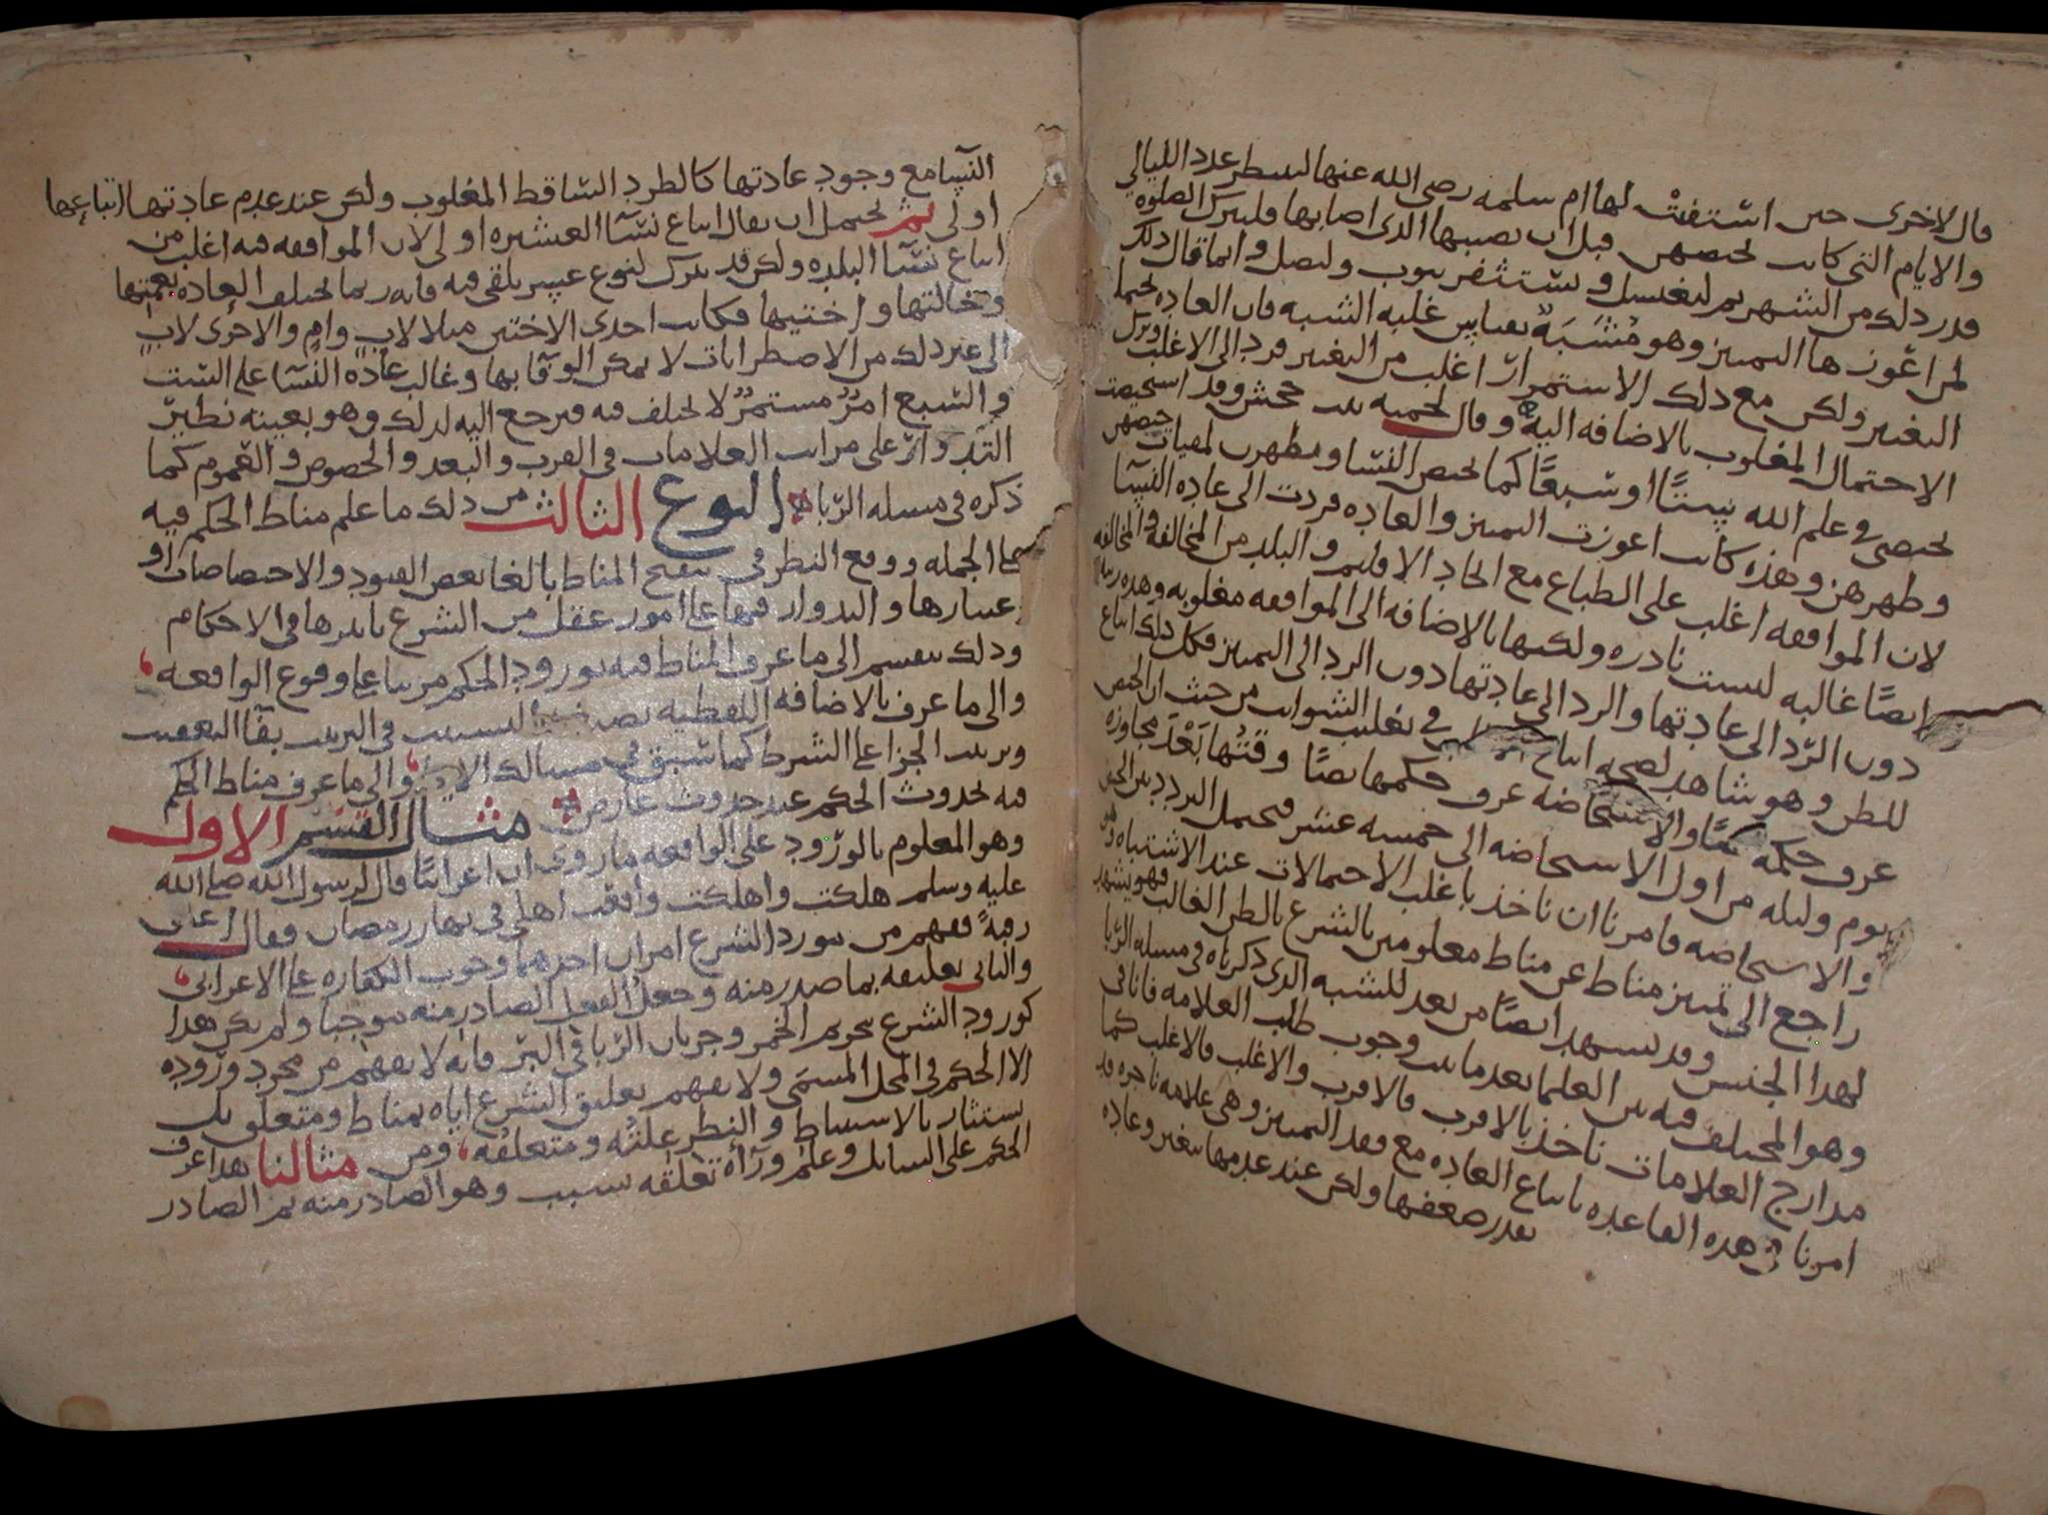 قال لاخرى حين استفتت لها ام سلمه رضى الله عنها لتنظر عدد الليالي
والايام التى كانت تحيضهن قبل ان يصيبها الذى اصابها فلتترك الصلوة
قدر ذلك من الشهر ثم لتغتسل وتستثفر بثوب ولتصل وانما قال ذلك
التغير ولكن مع ذلك الاستمرار اغلب من التغير فرد الى الاغلب
الاحتمال المغلوب بالاضافه اليه وقال لحمنه بنت جحش وقد استحيضت
تحيضى فى علم الله ستًا او سبعًا كما تحيض النسا ويطهرن لميقات حيضهن
وطهرهن وهذه كانت اعوزت التمييز والعاده فردت الى عادة النسآ
لان الموافقه اغلب على الطباع مع اتحاد الاقليم والبلد من المخالفه والمخالفه
ايضًا غالبه ليست نادره ولكنها بالاضافه الى الموافقه مغلوبه وهذه
دون الرّد الى عادتها والرد الى عادتها دون الرد الى التمييز فكل ذلك اتباع
للظن وهو شاهد لصحه اتباع فى تغليب الشوايب من حيث ان الحيض
عرف حكمه والاستحاضه عرف حكمها نصًا وقتها بَعْدَ مجاوزة
يوم وليله من اول الاستحاضه الى خمسه عشر فيحتمل التردد بين الحيض
والاستحاضه فامرنا ان ناخذ باغلب الاحتمالات عند الاشتباه
راجع الى تمييز مناط عن مناط معلومين بالشرع بالظن الغالب فهو يشهد
لهذا الجنس وقد يشهد ايضًا من بعد للشبه الذى ذكرناه فى مسله الربا
وهو المختلف فيه بين العلما بعد ما وجوب طلب العلامه فانا فى
مدارج العلامات ناخذ بالاقرب فالاقرب والاغلب فالاغلب كما
امرنا فى هذه القاعده باتباع العاده مع فقد التمييز وهى علامه
ضعفها ولكن عند عدمها وعاده
النسآ مع وجود عادتها كالطرد الساقط المغلوب ولكن عند عدم عادتها اتباعها
اولى ثم يحتمل ان يقال اتباع نسآ العشيره اولى لان الموافقه فيه اغلب من
اتباع نسآ البلده ولكن قد يترك لنوع عسر يلقى فيه فانه ربما تختلف العاده بعمتها
وخالتها واختيها فكانت احدى الاختين مثلا لاب وام والاخرى لاب
الى غير ذلك من الاضطرابات لا يمكن الوفا بها وغالب عادة النسا على الست
والسبع امرٌ مستمرٌ لا يختلف فيه فيرجع اليه لذلك وهو بعينه نظير
التدوار على مراتب العلامات فى القرب والبعد والخصوص والعموم كما
ذكره فى مسله الربا النوع الثالث من ذلك ما علم مناط الحكم فيه
على الجمله ووقع النظر فى تنقيح المناط بالغا بعض القيود والاختصاصات او
اعتبارها والتدوار فيها على امور عقل من الشرع تاثيرها فى الاحكام
وذلك ينقسم الى ما عرف المناط فيه بورود الحكم مرتبا على وقوع الواقعه
والى ما عرف بالاضافه اللفظيه بصيغه التسبيب فى الترتيب بفآ التعقيب
وترتيب الجزا على الشرط كما سبق فى مسالك الايما والى ما عرف مناط الحكم
فيه بحدوث الحكم عند حدوث عارض مثال القسم الاول
وهو المعلوم بالورود على الواقعه ما روى ان اعرابيًا قال لرسول الله صلى الله
عليه وسلم هلكت واهلكت واقعت اهلى فى نهار رمضان فقال اعتق
رقبةً ففهم من مورد الشرع امران احدهما وجوب الكفاره على الاعرابى
والثانى تعليقه بما صدر منه وجعل الفعل الصادر منه موجبا ولم يكن هذا
كورود الشرع بتحريم الخمر وجريان الربا فى البر فانه لا يفهم من مجرد وروده
الا الحكم فى المحل المسمى ولا يفهم تعليق الشرع اياه بمناط ومتعلق بل
يستثار بالاستنباط والنظر علته ومتعلقه ومن مثالنا هذا عرف
الحكم على السايل وعلم ورآه تعلقه بسبب وهو الصادر منه ثم الصادر